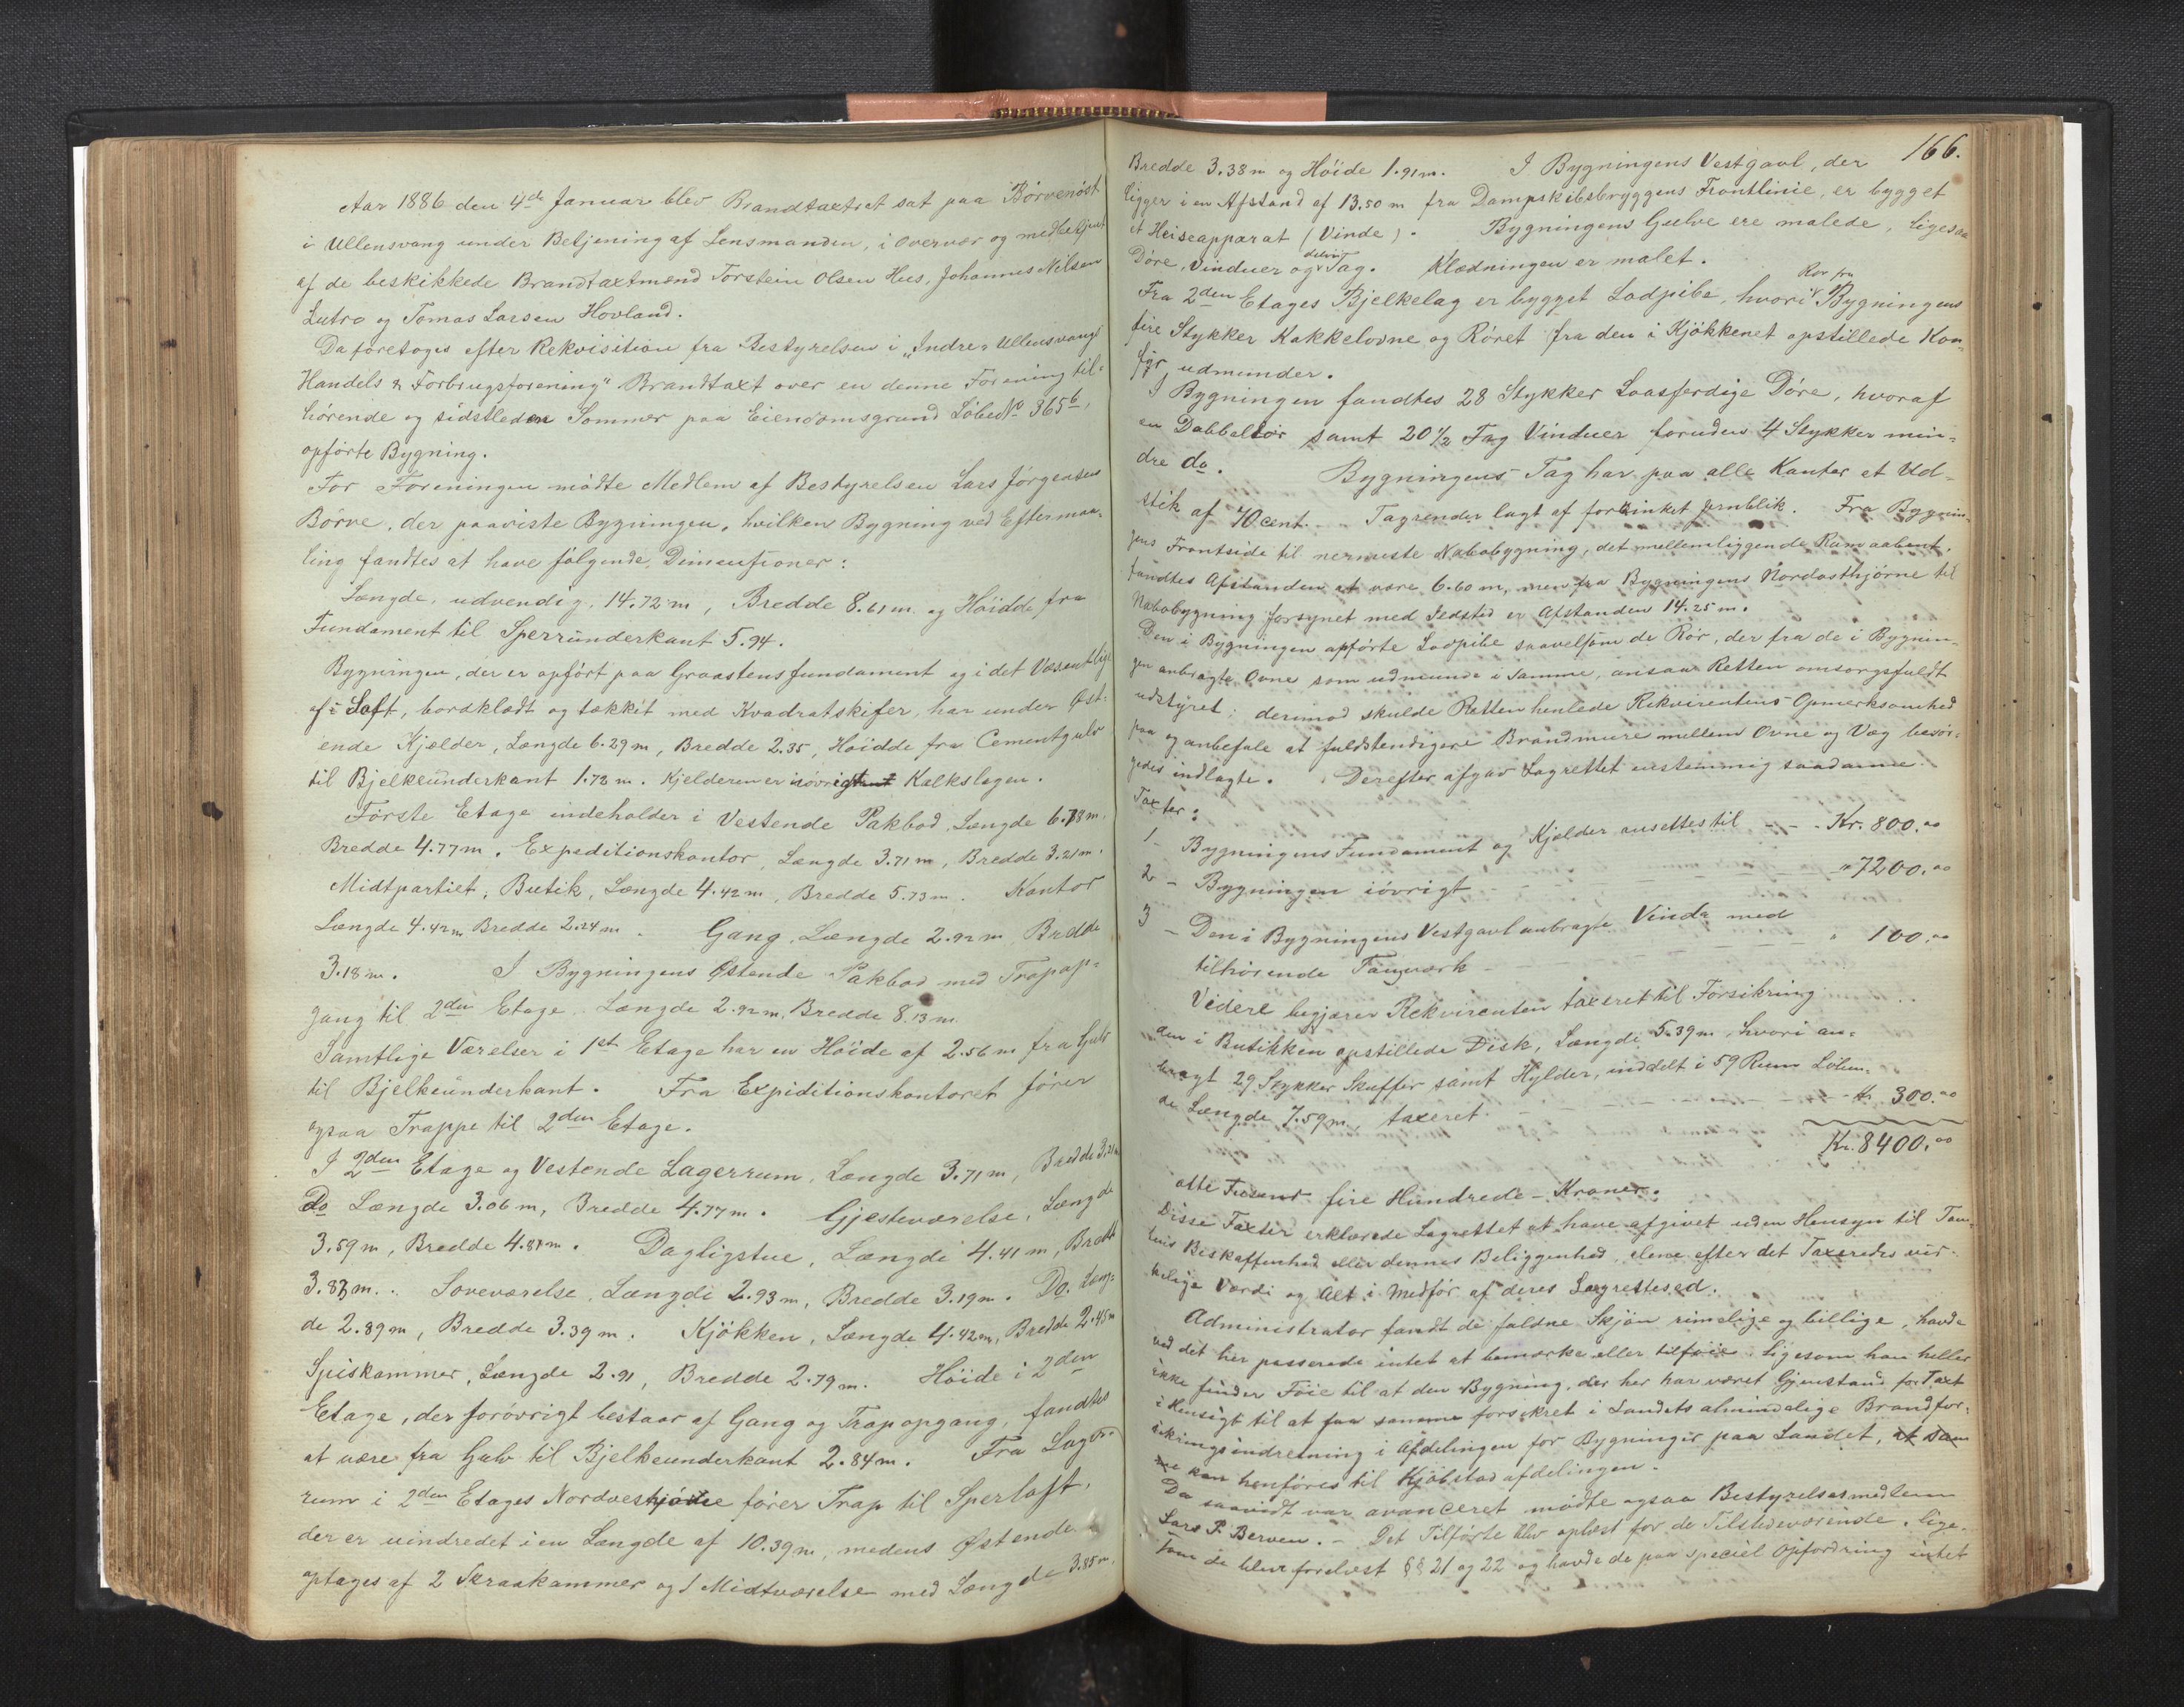 Aar 1886 den 4de Januar blev Brandtaxtret sat paa Börvenöst
i Ullensvang under Betjening af Lensmanden, i Overvær og medbetjent
af de beskikkede Brandtaxtmænd Torstein Olsen Hus, Johannes Nilsen
Lutro og Tomas Larsen Hovland.
Da foretoges efter Rekvisition fra Bestyrelsen i „Indre Ullensvangs
Handels & Forbrugsforening" Brandtaxt over en denne Forening til-
hörende og sidstleden Sommer paa Eiendomsgrund LöbeNo 365b,
opförte Bygning.
For Foreningen mödte Medlem af Bestyrelsen Lars Jörgensen
Börve, der paaviste Bygningen, hvilken Bygning ved Eftermaa-
ling fandtes at have fölgende Dimensioner:
Længde, udvendig, 14.72 m, Bredde 8.61 m og Höidde fra
Fundament til Sperrunderkant 5.94.
Bygningen, der er opfört paa Graastensfundament og i det Væsentlige
af Loft, bordklædt og tækkit med Kvadratskifer, har under Öst-
ende Kjelder, Længde 6.29 m, Bredde 2.35, Höidde fra Cementgulv
til Bjelkeunderkant 1.73 m. Kjelderen er iövrigt Kalkslagen.
Förste Etage indeholder i Vestende Pakbod, Længde 6.78 m,
Bredde 4.77 m. Expeditionskontor, Længde 3.71 m, Bredde 3.21 m.
Midtpartiet, Butik, Længde 4.42 m, Bredde 5.73 m. Kontor
Længde 4.42 m Bredde 2.24 m. Gang, Længde 2.92 m Bredde
3.18 m. I Bygningens Östende Pakbod med Trapop-
gang til 2den Etage. Længde 2.92 m, Bredde 8.13 m.
Samtlige Værelser i 1st Etage har en Höide af 2.56 m fra Gulv
til Bjelkeunderkant. Fra Expiditionskontoret förer
ogsaa Trappe til 2den Etage.
I 2den Etage og Vestende Lagerrum, Længde 3.71 m, Bredde 3.21 m
Do Længde 3.06 m, Bredde 4.77 m. Gjesteværelse, Længde
3.59 m, Bredde 4.87 m. Dagligstue, Længde 4.41 m, Bredde
3.87 m. Soveværelse, Længde 2.93 m, Bredde 3.19 m. Do. Læng-
de 2.89 m, Bredde 3.39 m. Kjökken, Længde 4.42 m, Bredde 2.45 m
Spiskammer, Længde 2.91, Bredde 2.79 m. Höide i 2den
Etage, der forövrigt bestaar af Gang og Trapopgang, fandtes
at være fra Gulv til Bjelkeunderkant 2.84 m. Fra Lager-
rum i 2den Etages Nordvesthjörne förer Trap til Sperloft,
der er uindredet i en Længde af 10.39 m, medens Östende
optages af 2 Skraakammer og 1 Midtværelse med Længde 3.85 m,
166.
Bredde 3.38 m og Höide 1.91 m. I Bygningens Vestgavl, der
ligger i en Afstand af 13.50 m fra Dampskibsbryggens Frontlinie, er bygget
et Heiseapparat (Vinde). Bygningens Gulve ere malede, ligesaa
Döre, Vinduer og delvis Tag. Klædningen er malet.
Fra 2den Etages Bjelkelag er bygget Lodpibe, hvori Rör fra Bygningens
fire Stykker Kakkelovne og Röret fra den i Kjökkenet opstillede Kom-
fyr, udmunder.
I Bygningen fandtes 28 Stykker Laasferdige Döre, hvoraf
en Dobbeltör samt 20 1/2 Fag Vinduer foruden 4 Stykker min-
dre do. Bygningens Tag har paa alle Kanter et Ud-
stik af 70 cent. Tagrender lagt af forzinket Jernblik. Fra Bygnin-
gens Frontside til nermeste Nabobygning, det mellemliggende Rum aabent,
fandtes Afstanden at være 6.60 m, men fra Bygningens Nordosthjörne til
Nabobygning forsynet med Ildsted er Afstanden 14.25 m.
Den i Bygningen opförte Lodpibe saavelsom de Rör, der fra de i Bygnin-
gen anbragte Ovne som udmunde i Samme, ansaa Retten omsorgsfuldt
udstyret; derimod skulde Retten henlede Rekvirentens Opmerksomhed
paa og anbefale at fuldstendigere Brandmure mellem Ovne og Væg besör-
gedes indlagte. Derefter afgav Lagrettet enstemmig saadanne
Taxter:
1 - Bygningens Fundament og Kjelder ansettes til - - - Kr. 800.00
2 - Bygningen iövrigt - - - " 7200.00
3 - Den i Bygningens Vestgavl anbragte Vinde med
tilhörende Taugværk - - - " 100.00
Videre begjærer Rekvirenten taxeret til Forsikring
den i Butikken opstillede Disk, Længde 5.39 m, hvori an-
bragt 29 Stykker Skuffer samt Hylder, inddelt i 59 Rum Löben-
de Længde 7.59 m, taxeret - - - Kr. 300.00
Kr. 8400.00
otte Tusend fire Hundrede - Kroner.
Disse Taxter erklærede Lagrettet at have afgivet uden Hensyn til Tom-
tens Beskaffenhed eller dennes Beliggenhed, alene efter det Taxeredes vir-
kelige Værdi og Alt i Medför af deres Lagrettesed.
Administrator fandt de faldne Skjön rimelige og billige, havde
ved det her passerede intet at bemærke eller tilföie, ligesom han heller
ikke finder Föie til at den Bygning, der her har været Gjenstand for Taxt
i Hensigt til at faa samme forsikret i Landets almindelige Brandfor-
sikringsindretning i Afdelingen for Bygninger paa Landet, at sam
me kan henföres til Kjöbstadafdelingen.
Da saavidt var avanceret mödte ogsaa Bestyrelsesmedlem
Lars P. Berven. - Det Tilförte blev oplæst for de Tilstedeværende, lige-
som de blev forelæst §§ 21 og 22 og havde de paa speciel Opfordring intet